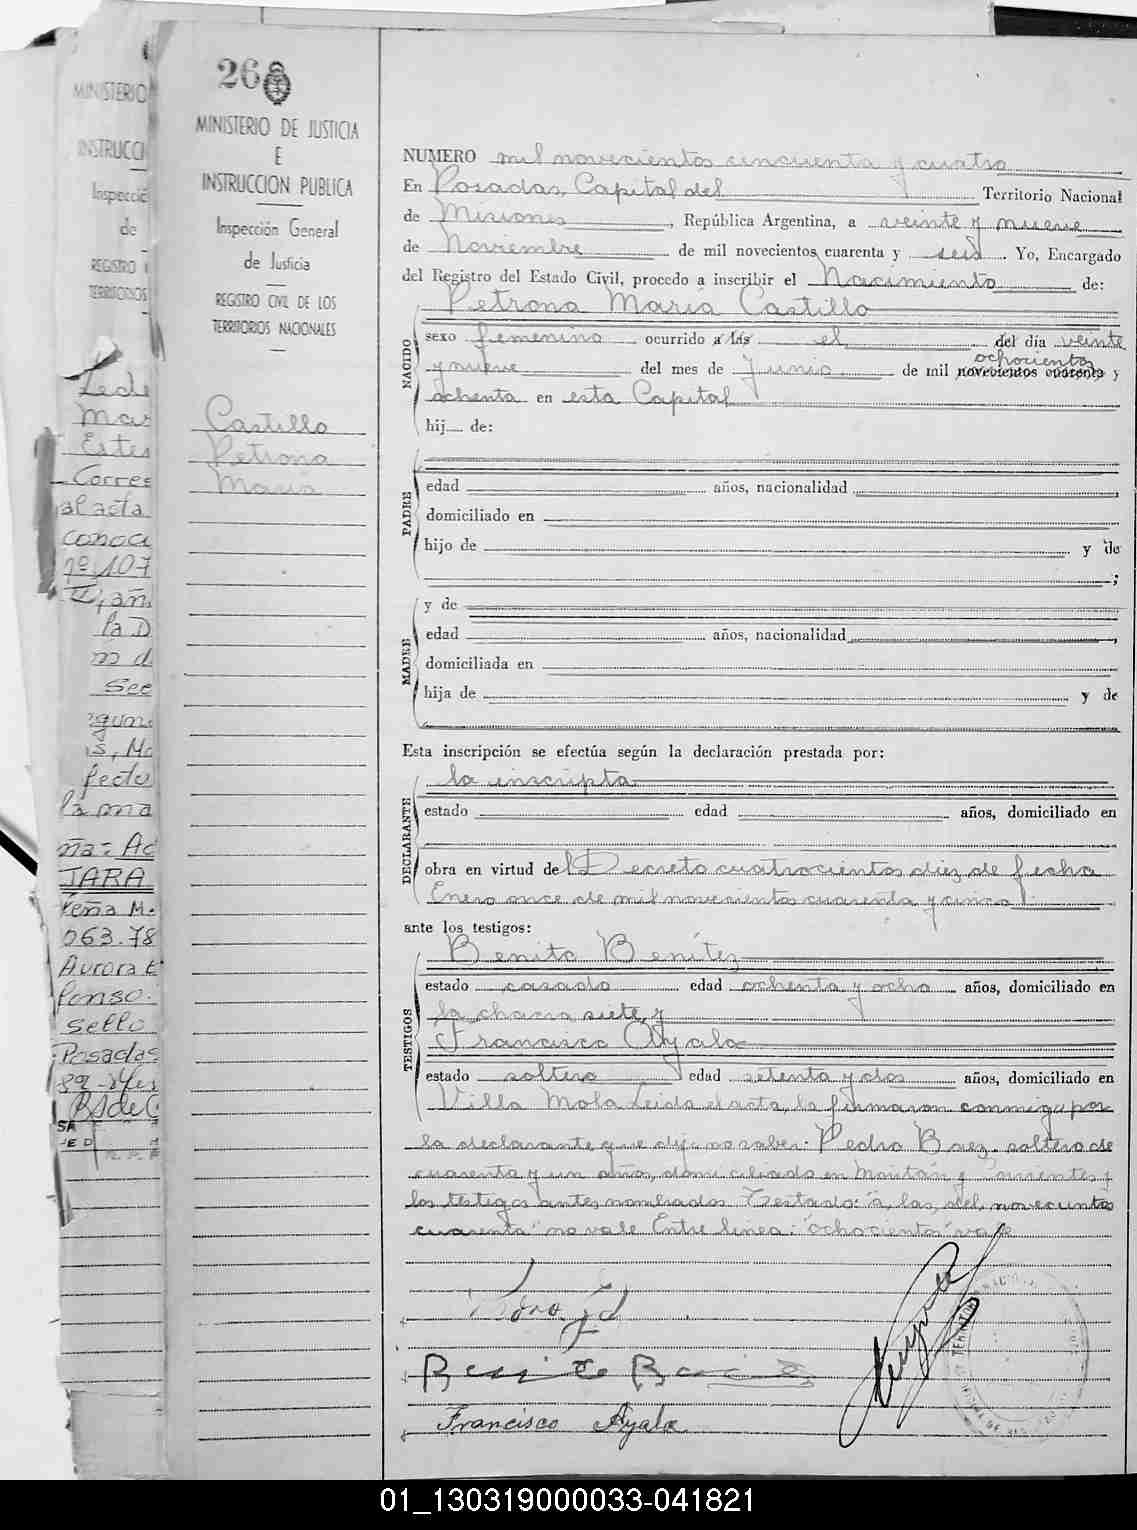 26
MINISTERIO DE JUSTICIA
E
INSTRUCCION PUBLICA
Inspección General
de Justicia
REGISTRO CIVIL DE LOS
TERRITORIOS NACIONALES
Castillo
Petrona
Maria
MINISTERIO
INSTRUCCI
Inspecció
de
REGISTRO
TERRITORIOS
Lede
Mar
Ester
Corres
al acta
conoci
nº 107
la D
m d
See
gun
s, Mo
fecto
la ma
ña: Ac
JARA
Peña M.
063.78
Aurora E
Ponso.
Sello
Posadas
NUMERO mil novecientos cincuenta y cuatro
En Posadas, Capital del Territorio Nacional
de Misiones, República Argentina, a veinte y nueve
de Noviembre de mil novecientos cuarenta y seis. Yo, Encargado
del Registro del Estado Civil, procedo a inscribir el Nacimiento de:
Petrona Maria Castillo
NACIDO
sexo femenino ocurrido a las el del día veinte
ochocientos
y nueve del mes de Junio de mil novecientos cuarenta y
ochenta en esta Capital
hij de:
PADRE
edad años, nacionalidad
domiciliado en
hijo de y de
;
MADRE
y de
edad años, nacionalidad ,
domiciliada en
hija de y de
Esta inscripción se efectúa según la declaración prestada por:
DECLARANTE
la inscripta
estado edad años, domiciliado en
obra en virtud del Decreto cuatrocientos diez de fecha
Enero once de mil novecientos cuarenta y cinco
ante los testigos:
TESTIGOS
Benito Benítez
estado casado edad ochenta y ocho años, domiciliado en
la chacra siete, y
Francisco Ayala
estado soltero edad setenta y dos años, domiciliado en
Villa Mola Leida el acta, la firmaron conmigo por
la declarante que dijo no saber: Pedro Baez, soltero de
cuarenta y un años, domiciliado en Maitén y Corrientes y
los testigos antes nombrados. Testado: "a, las, del, novecientos
cuarenta" no vale. Entre linea: "ochocientos" vale
Benito Benitez
Francisco Ayala
01_130319000033-041821